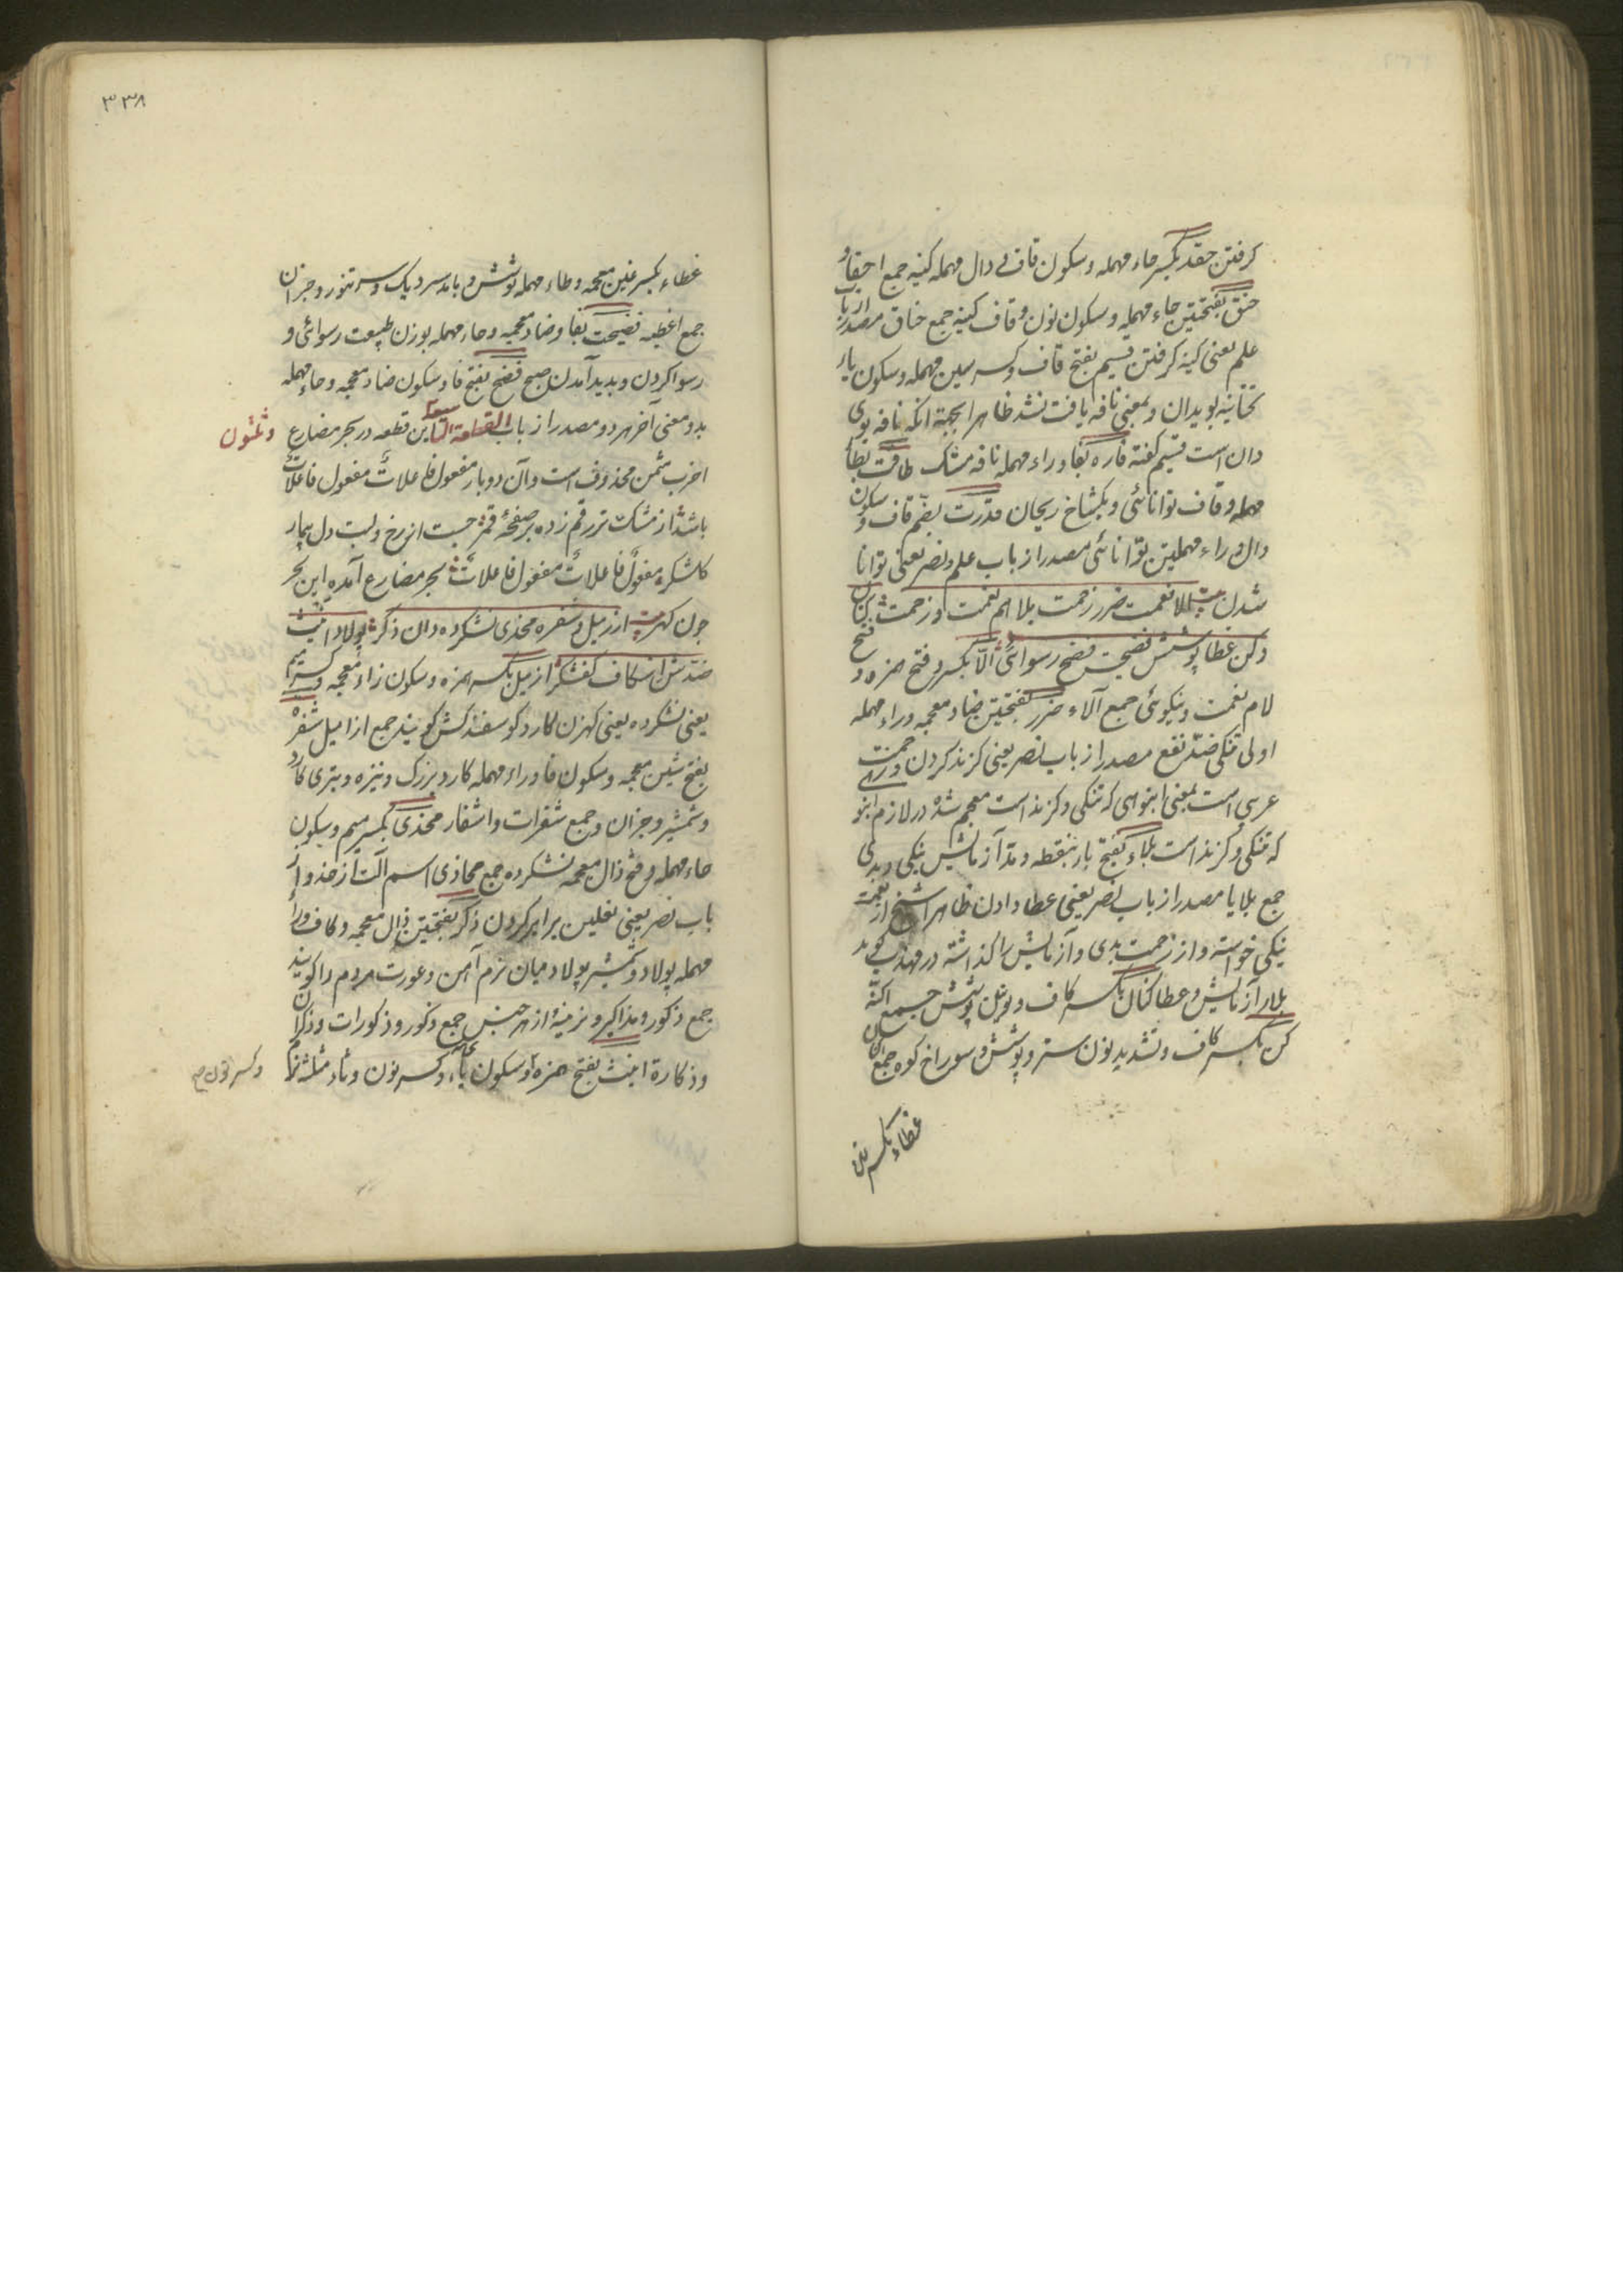 كرفتن حقد بكسر حاء مهمله وسكون قاف و دال مهمله كينه جمع احقاد و
حنق بفتحتين حاء مهمله وسكون نون و قاف كينه جمع حناق مصدر از باب
علم يعنى كينه كرفتن قسيم بفتح قاف وكسر سين مهمله وسكون ياء
تحتانيه بويدان و بمعنى نافه يافت نشد ظاهرا بجهة انكه نافه بوى
دان است قسيم كفته فاره بفا و راء مهمله نافه مشك طاقت بطا
مهمله و قاف توانائى و يكشاخ ريحان قدرت بضم قاف و سكون
دال و راء مهملتين توانائى مصدر از باب علم و نصر يعنى توانا
شدن الا نعمت ضرر زحمت بلا هم نعمت و زحمت كنان
و كن غطا پوشش فضيحت فضح رسوائى الا بكسر و فتح همزه و فتح
لام نعمت و نيكوئى جمع آلاء ضرر بفتحتين ضاد معجمه و راء مهمله
اولى تنكى ضد نفع مصدر از باب نصر يعنى كزند كردن و زحمت
عربي است بمعنى انبوهى كه تنكى و كزند است معجم شده در لازم انبو
كه تنكى و كزند است بلاء بفتح باء بنقطه و مد آزمايش نيكى و بدى
جمع بلايا مصدر از باب نصر يعنى عطا دادن ظاهرا شيخ از نعمت
نيكى خواسته و از زحمت بدى و آزمايش را كذاشته در مهذب كويد
بلاء آزمايش و عطا كنان بكسر كاف و نونين پوشش جمع اكنه
كن بكسر كاف و تشديد نون ستر و پوشش و سوراخ كوه جمع اكنان
غطاء بكسر غين
٣٣٨
غطاء بكسر غين معجمه و طاء مهمله پوشش و بامد سر ديك و سر تنور و جز آن
جمع اغطيه فضيحت بفا و ضاد معجمه و حاء مهمله بوزن طبيعت رسوائى و
رسوا كردن و پديد آمدن صبح فضح بفتح فا و سكون ضاد معجمه و حاء مهمله
بدو معنى آخر هر دو مصدر از باب القطعة التاسعة اين قطعه در بحر مضارع
و ثلثون
اخرب مثمن محذوف است و آن دو بار مفعول فاعلات مفعول فاعلات
باشد از مشك تر رقم زده بر صفحۀ قمر جست از رخ و لبت دل بيمار
كلشكر مفعول فاعلات مفعول فاعلات بحر مضارع آمده اين بحر
چون كهر ازميل و شفره محذى نشكرده دان ذكر پولاد انيث
ضدش اسكاف كفشكر ازميل بكسر همزه و سكون زاء معجمه و كسر ميم
يعنى نشكرده يعنى كهزن كارد كوسفند كش كويند جمع ازاميل شفره
بفتح شين معجمه و سكون فا و راء مهمله كارد بزرك و نيزه و تيزى كارد
و شمشير و جز آن و جمع شفرات و اشفار محذى بكسر ميم و سكون
حاء مهمله و فتح ذال معجمه نشكرده جمع محاذى اسم آلت از حذو از
باب نصر يعنى نعلين برابر كردن ذكر بفتحتين ذال معجمه و كاف و راء
مهمله پولاد و شمشير پولاد ميان نرم آهن و عورت مردم را كويند
جمع ذكور و مذاكير و نرينه از هر جنس جمع ذكور و ذكورات و ذكران
و ذكارة انيث بفتح همزه و سكون ياء و كسر نون و ثاء مثلثه نرم
وكسر نون صح